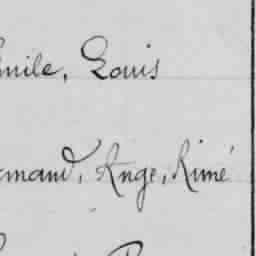 mile, Louis
rmand, Ange, Aimé